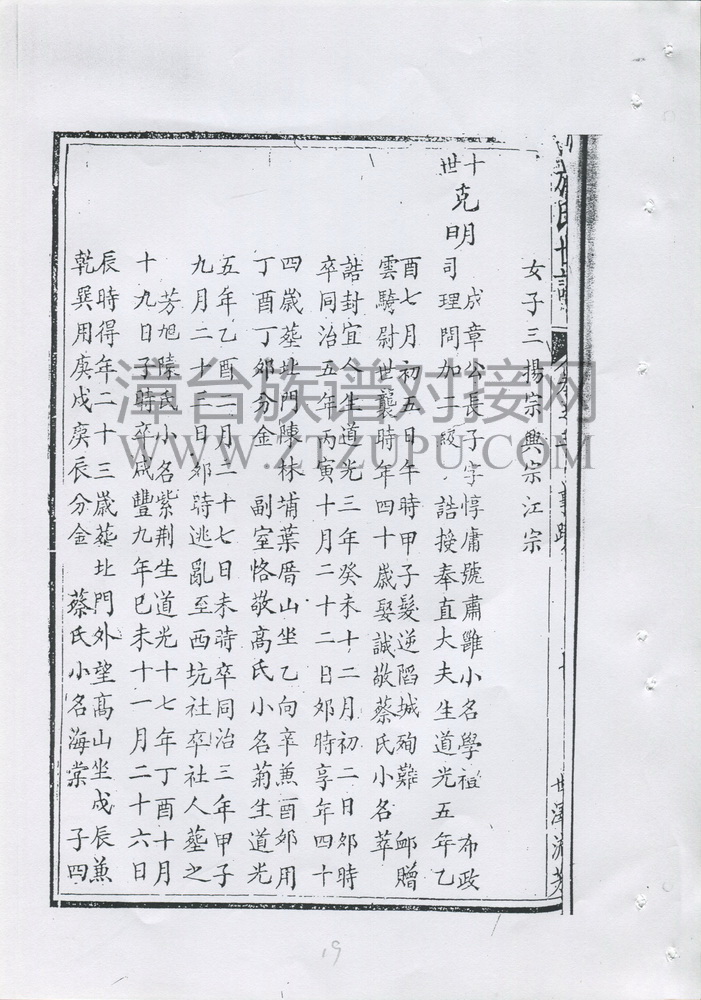 施氏世譜
世澤流芳
女子三揚宗興宗江宗
十世
克明
成章公長子字惇庸號肅雝小名學禃 布政
司理問加二級誥授奉直大夫生道光五年乙
酉七月初五日午時甲子髮逆陷城殉難 卹贈
雲騎尉世襲時年四十歲娶誠敬蔡氏小名萃
誥封宜人生道光三年癸未十二月初二日卯時
卒同治五年丙寅十月二十二日卯時享年四十
四歲葬北門陳林埔葉厝山坐乙向辛兼酉卯用
丁酉丁卯分金 副室恪敬高氏小名菊生道光
五年乙酉二月二十七日未時卒同治三年甲子
九月二十三日卯時逃亂至西坑社卒社人葬之
芳旭陳氏小名紫荆生道光十七年丁酉十月
十九日子時卒咸豐九年巳未十一月二十六日
辰時得年二十三歲葬北門外望高山坐戍辰兼
乾巽用庚戍庚辰分金 蔡氏小名海棠 子四
漳台族谱对接网
WWW.ZTZUPU.COM
19